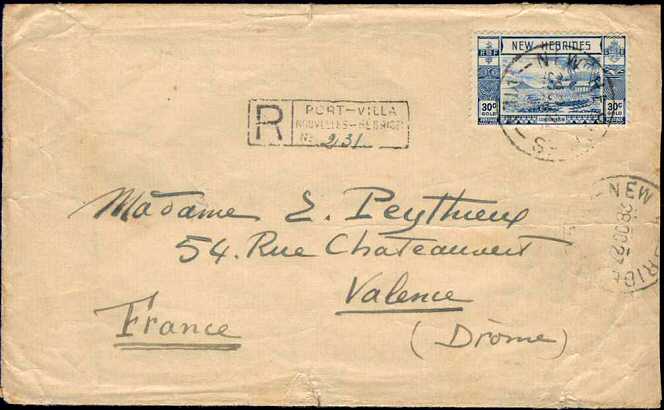 NEW HEBRIDES
RF
30c
GOLD
30c
GOLD
NEW
R
PORT-VILLA
NOUVELLES-HEBRIDES
No 231
Madame E. Peythieux
54. Rue Chateauvert
Valence
France
(Drôme)
NEW